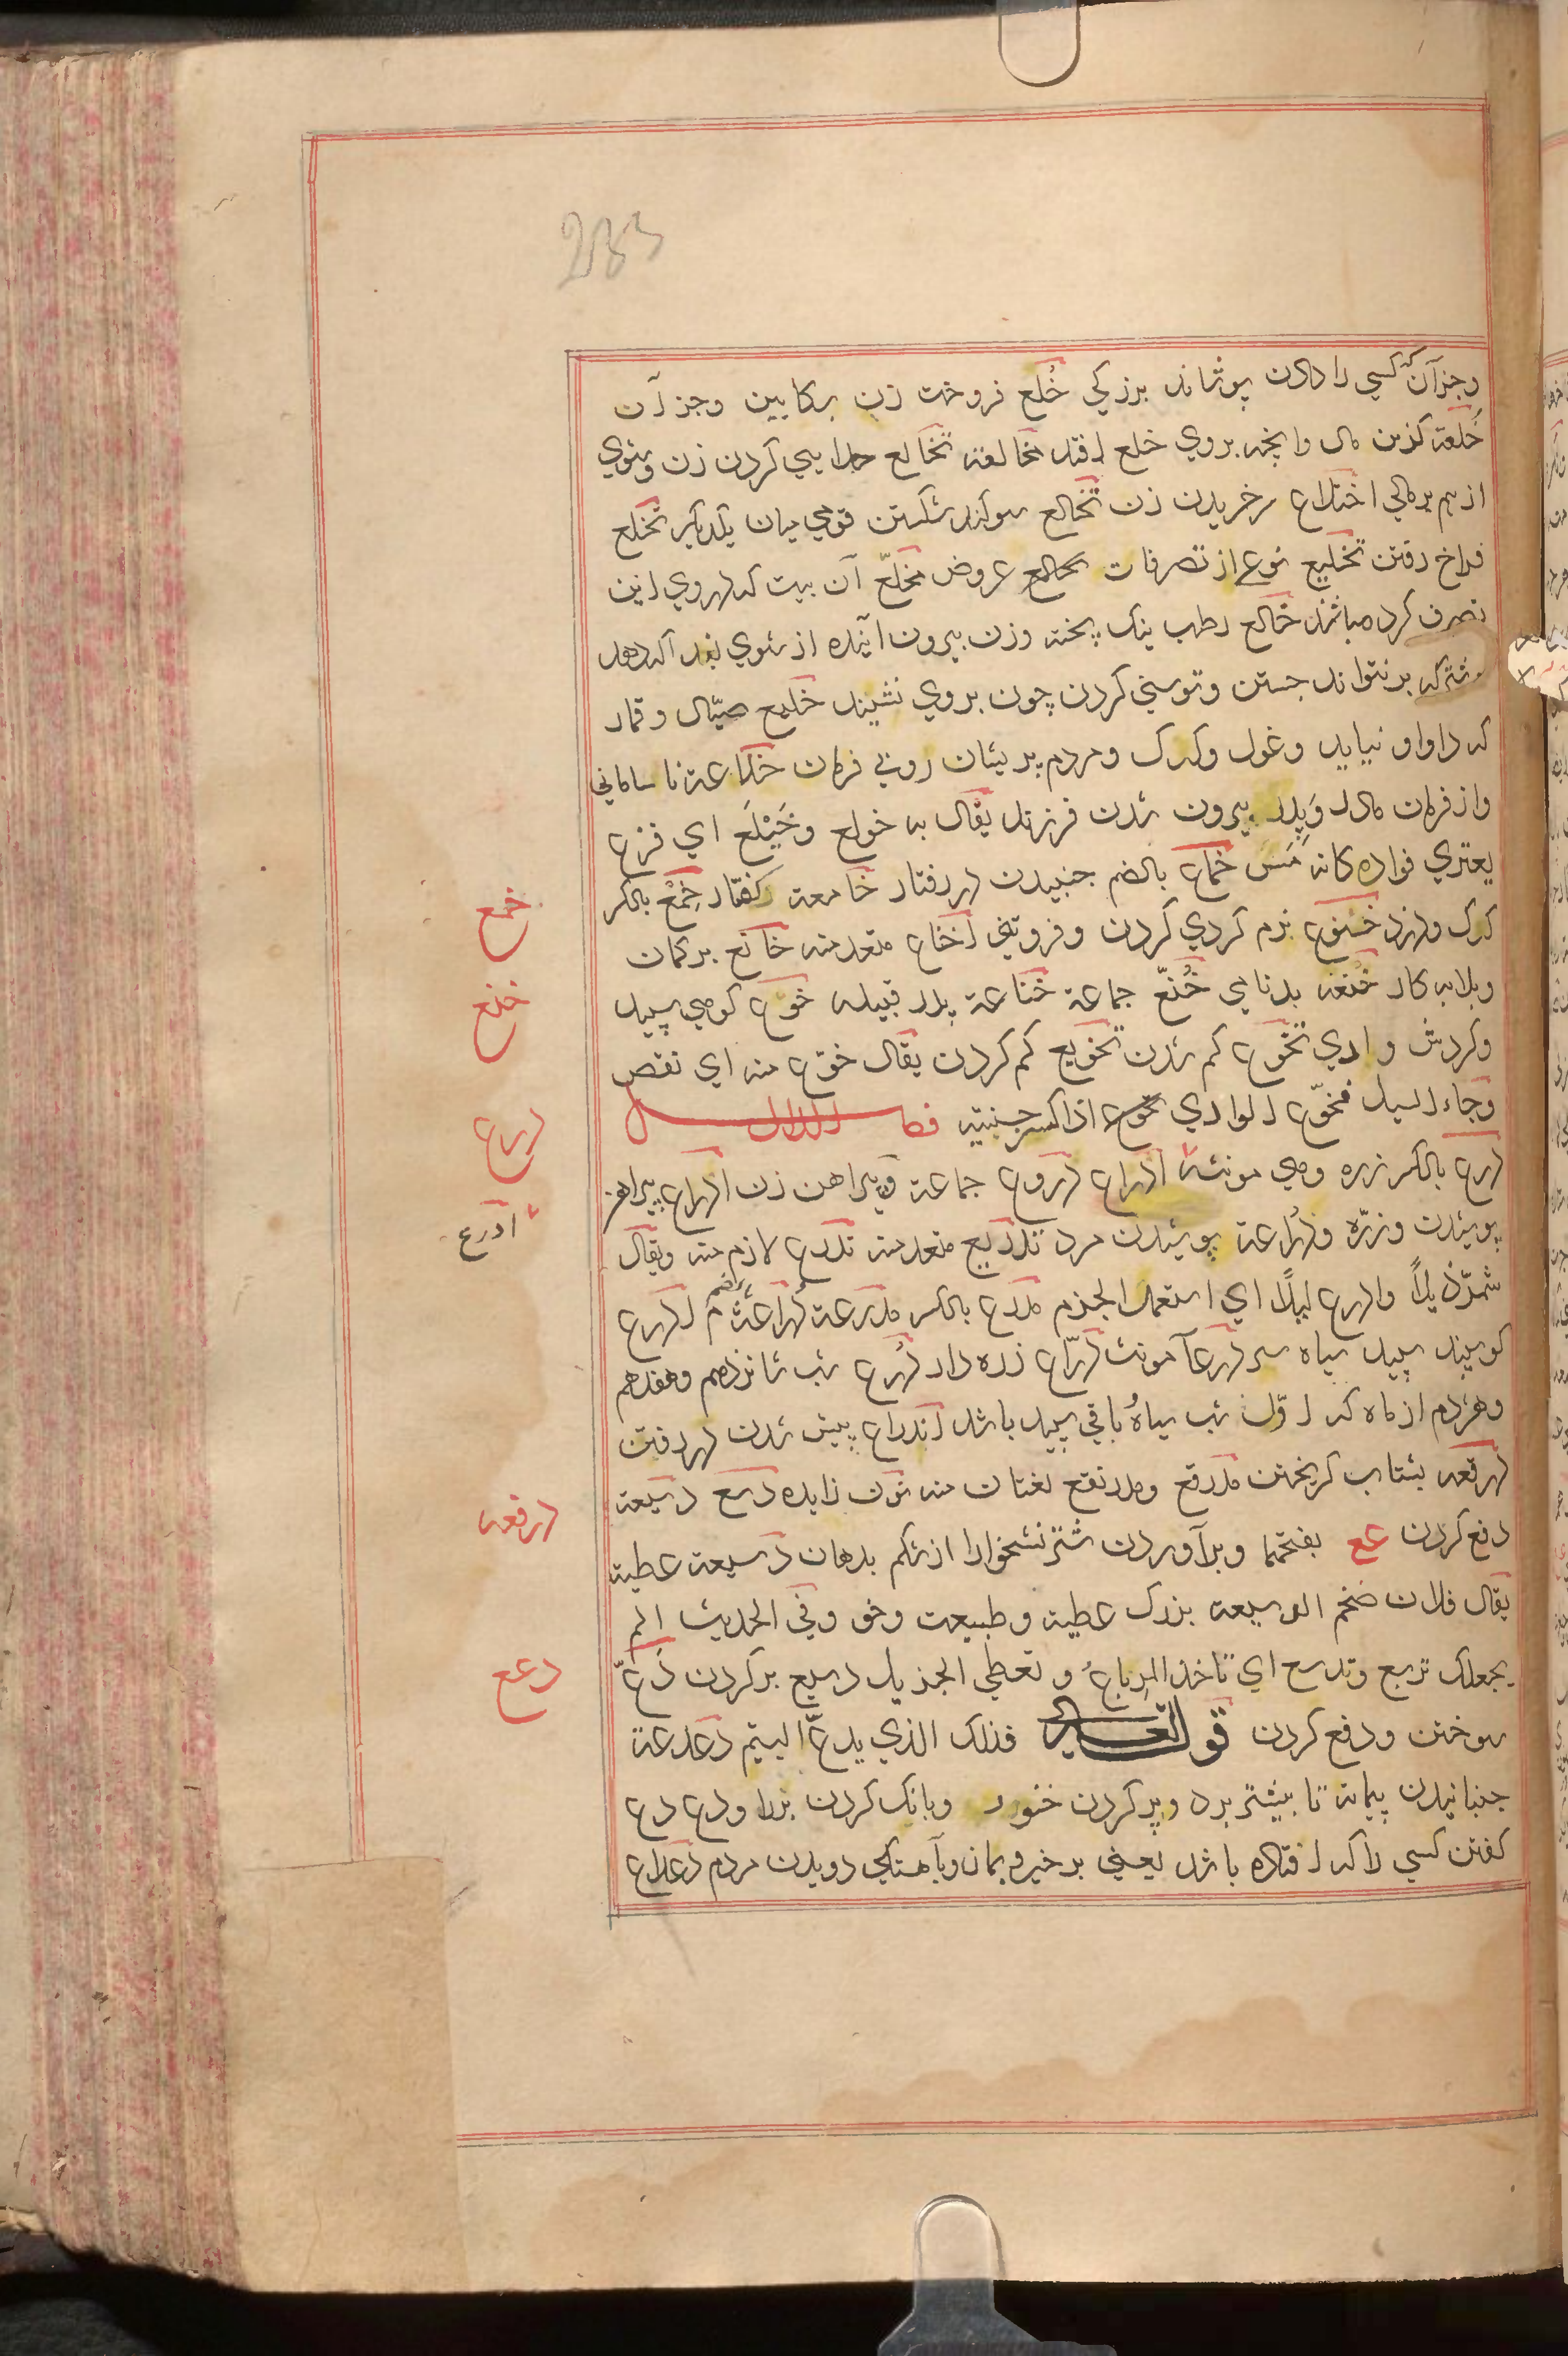 233
وجز آن که کسی را دادن پوشاند برزکی خُلع فروختن زن بکابین وجز آن
خُلعة کزین مال وانچه بروی خلع افتد مخالعة تخالع جدایی کردن زن وشوی
از هم بر مالی اختلاع سرخریدن زن تخالع سوکند شکستن قومی میان یکدیکر تخلع
فراخ رفتن تخلیع نوعی از تصرفات عروض مخلّع آن بیت که دروی ازین
تصرف کرده باشند خالع رطب نیک پخته وزن بیرون آینده از شوی
وشتر که بر نتواند جستن وتوسنی کردن چون بروی نشینند خلیع صیّاد وقمار
که داو او نیاید وغول وکرک ومردم پریشان روبی فرمان خلاعة نا سامانی
واز فرمان مادر وپدر بیرون شدن فرزند یقال به خولع وخَیْلَع ای فزع
یعتری فواده کانه مَسّ خماع بالضم جنبیدن در رفتار خامعة کفتار خِمْع بالکسر
کرک ودزد خنوع نرم کردی کردن وفروتنی اخناع متعد منه خانع بدکمان
وبلایه کار خُنعة بدنامی خُنّع جماعة خناعة پدر قبیله خوع کوهی سپید
وکردش وادی تخوّع کم شدن تخویع کم کردن یقال خوّع منه ای نقص
وجاء السیل فخوّع الوادی اذا کسر جنبتیه فصل الدال
درع بالکسر زره وهی مونثة ادراع دروع جماعة وپیراهن زن ادراع پیراهن
پوشیدن وزره ودراعة پوشیدن مرد تدریع متعد منه تدرع لازم منه ویقال
شمّر ذیلاً وادرع لیلاً ای استعمل الجزم مدرع بالکسر مدرعة دراعة م ادرع
کوسپند سپید سیاه سر درعآ مونث درّاع زره دار دُرع شب شانزدهم وهفدهم
وهژدهم از ماه که اوّل شب سیاه باقی سپید باشد اندراع پیش شدن در رفتن
درقعه بشتاب کریختن مدرقع ومدرنقع لغتان منه نون زایده دسع دسیعة
دفع کردن عع بفتحهما وبرآوردن شتر نشخوار از شکم بدهان دسیعة عطیة
یقال فلان ضخم الدسیعة بزرک عطیة وطبیعت وخو وفی الحدیث الم
یجعلک تربع وتدسع ای تاخذ المرباع وتعطی الجزیل دسیع بر کردن دعّ
سوختن ودفع کردن قوله تعالی فذلک الذی یدعّ الیتیم دعدعة
جنبانیدن پیمانه تا بیشتر برد وپر کردن خنور وبانک کردن بزرا ودع دع
کفتن کسی را که افتاده باشد یعنی برخیز وبمان وبآهستکی دویدن مردم دعداع
خمع
خنع
درع
ادرع
درقعه
دعع